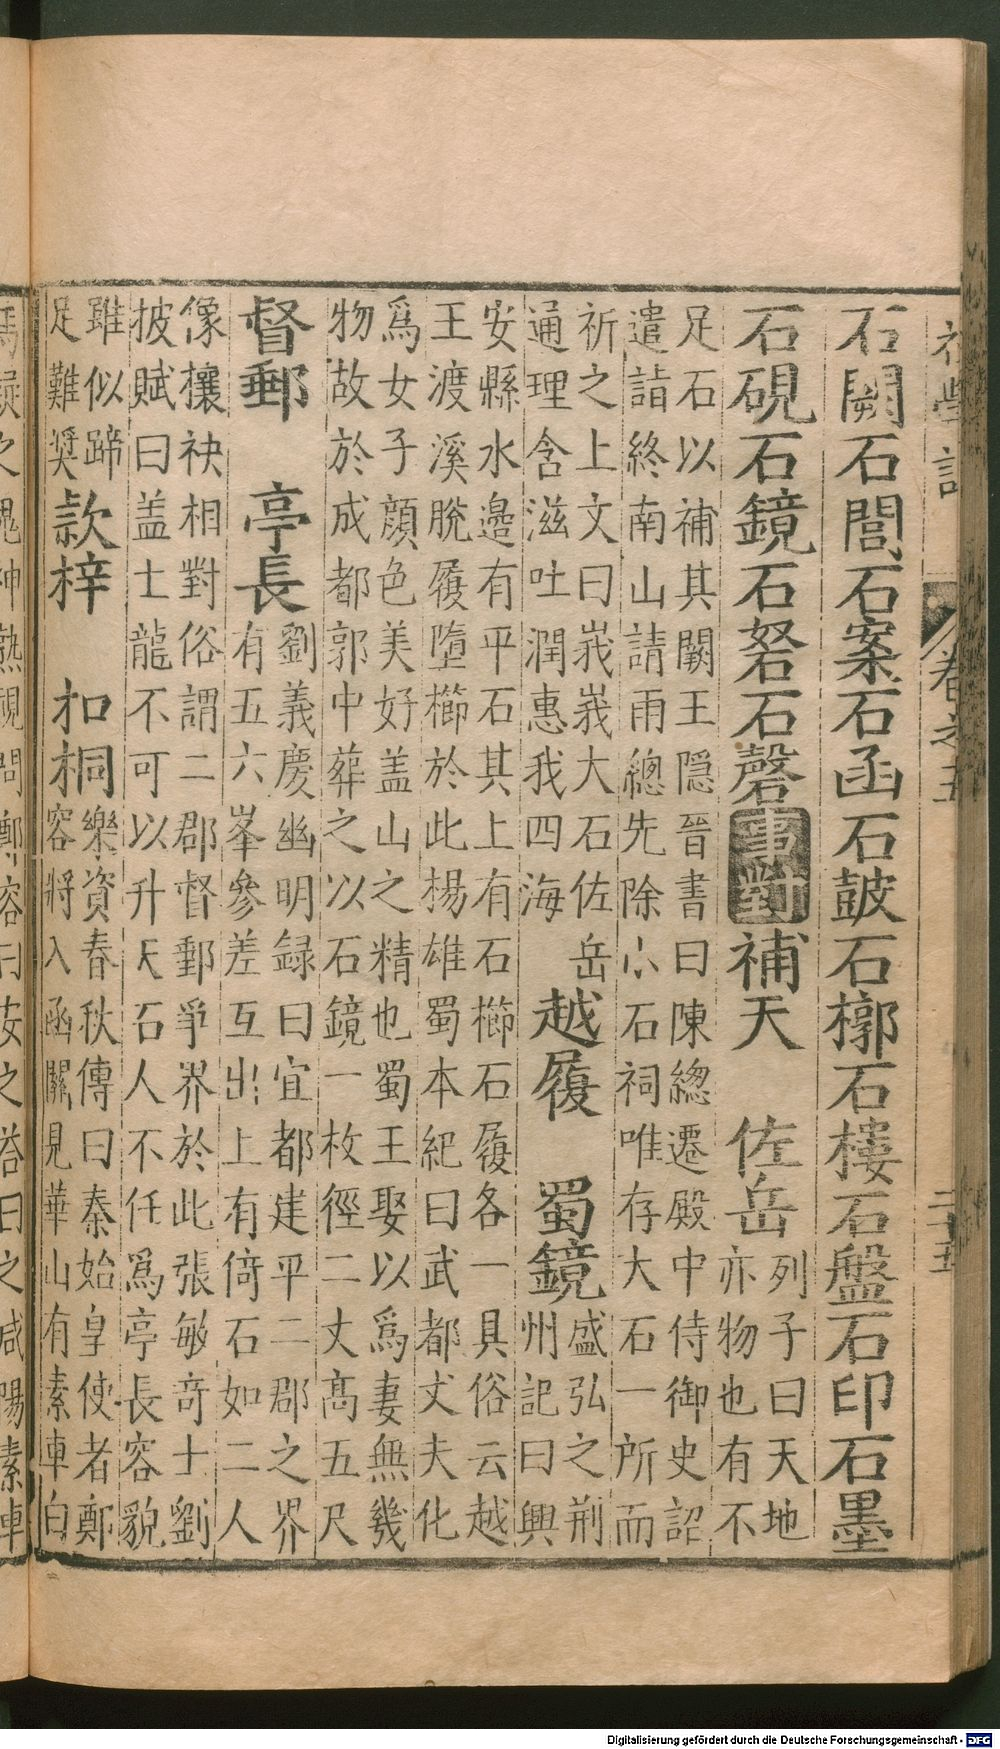 初學記 卷之五 二十五
石闕石閭石案石函石鼓石槨石樓石盤石印石墨
石硯石鏡石砮石磬 事對 補天 佐岳
列子曰天地
亦物也有不
足石以補其闕王隱晉書曰陳總遷殿中侍御史詔
遣詣終南山請雨總先除小石祠唯存大石一所而
祈之上文曰峩峩大石佐岳
通理含滋吐潤惠我四海
越履 蜀鏡
盛弘之荊
州記曰興
安縣水邉有平石其上有石櫛石履各一具俗云越
王渡溪脫履墮櫛於此楊雄蜀本紀曰武都丈夫化
爲女子顔色美好盖山之精也蜀王娶以爲妻無幾
物故於成都郭中葬之以石鏡一枚徑二丈髙五尺
督郵 亭長
劉義慶幽明録曰宜都建平二郡之界
有五六峯參差互出上有倚石如二人
像攘袂相對俗謂二郡督郵爭界於此張敏竒士劉
披賦曰盖士龍不可以升天石人不任爲亭長容貌
雖似蹄
足難奬
款梓 扣桐
樂資春秋傳曰秦始皇使者鄭
容將入函關見華山有素車白
Digitalisierung gefördert durch die Deutsche Forschungsgemeinschaft - DFG